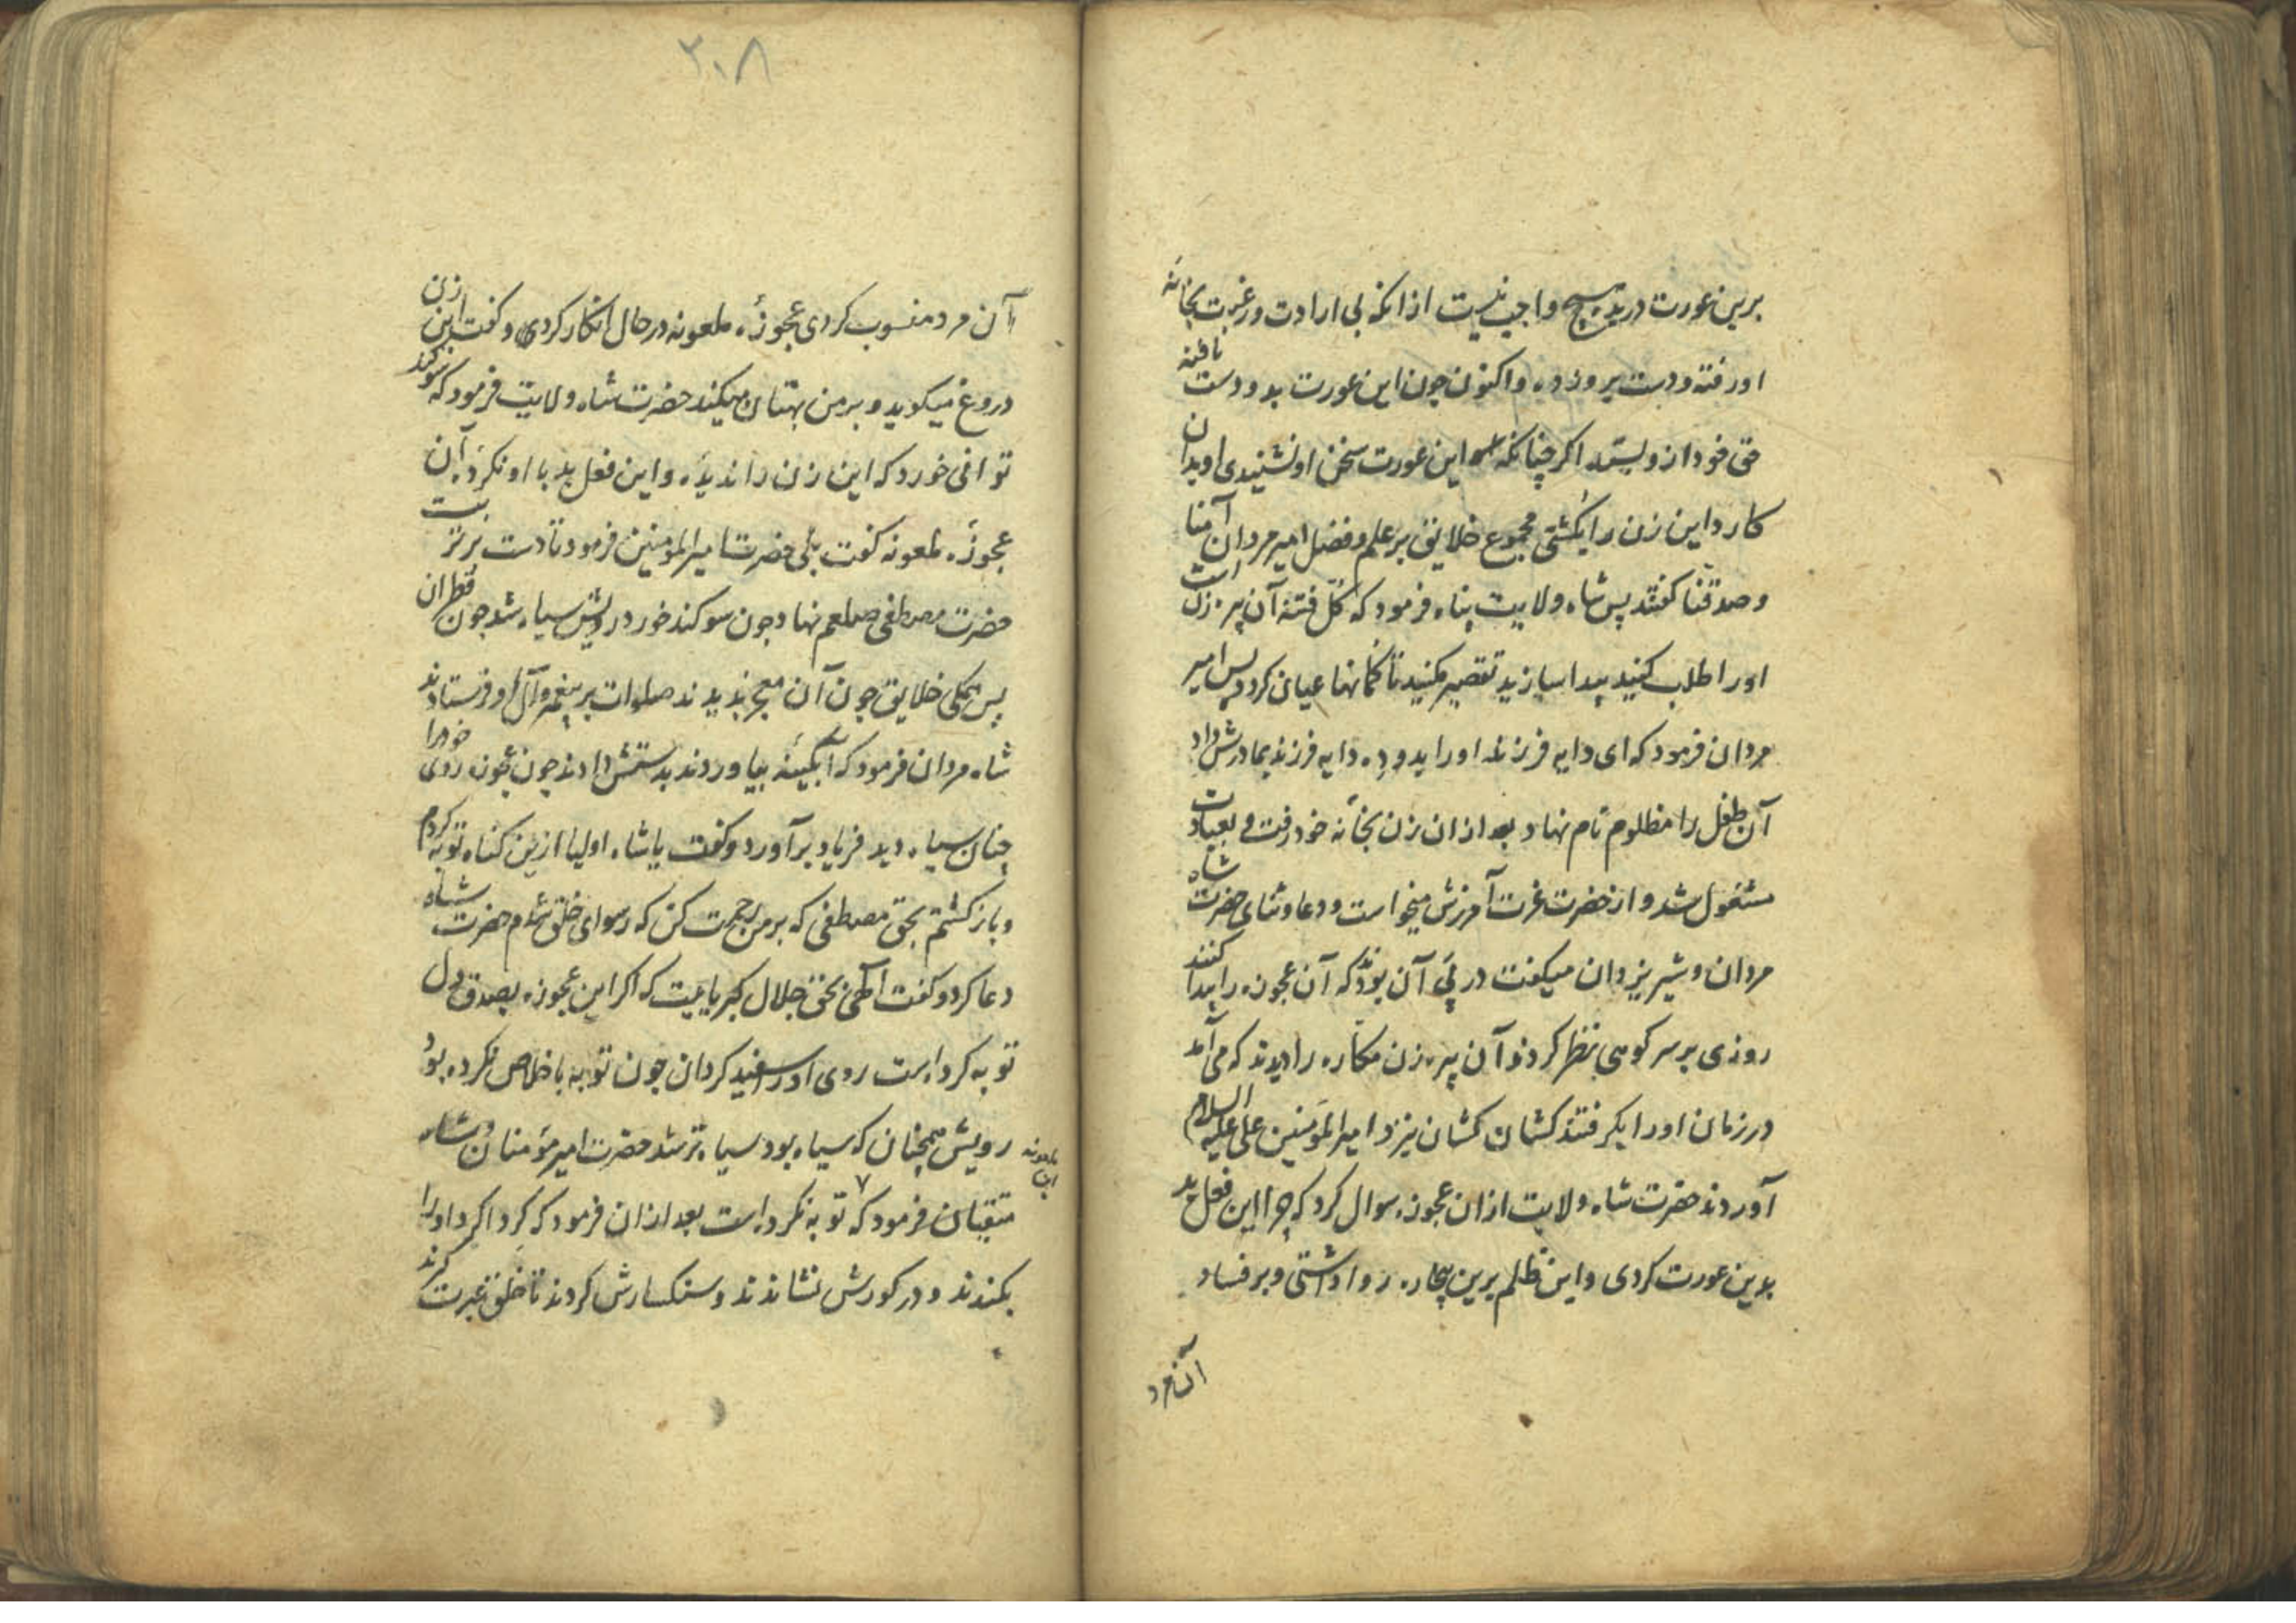 برین عورت دریه هیچ واجب نیست ازانکه بی ارادت و رغبت بخانه
او رفته و دست بروزده و اکنون چون این عورت بدو دست یافته
حق خود ازو بستد اکر چنانکه این عورت سخن او نشنیدی او بدان
کارد این زن را بکشتی مجموع خلایق بر علم و فضل امیر مردان آمنا
و صدقنا کفتند پس شاه ولایت پناه فرمود که کل فتنه آن پیره زن است
اورا طلب کنید پیدا سازید تقصیر مکنید تا کمانها عیان کردد پس امیر
مردان فرمود که ای دایه فرزند اورا بدو ده دایه فرزند بمادرش داد
آن طفل را مظلوم نام نهاد بعد ازان زن بخانه خود رفت و بعبادت
مشغول شد و از حضرت عزت آمرزش میخواست و دعا و ثنای حضرت شاه
مردان و شیر یزدان میکفت در پی آن بود که آن عجوزه را پیدا کنند
روزی بر سر کوهی نظر کردند آن پیره زن مکاره را دیدند که می آمد
در زمان اورا بکرفتند کشان کشان بنزد امیرالمؤمنین علی علیه السلام
آوردند حضرت شاه ولایت ازان عجوزه سوال کرد که چرا این فعل بد
بدین عورت کردی و این ظلم برین بیچاره روا داشتی و بر فساد
آن مرد
۲۰۸
آن مرد منسوب کردی عجوزهٔ ملعونه در حال انکار کردی و کفت این زن
دروغ میکوید و بر من بهتان میکند حضرت شاه ولایت فرمود که سوکند
توانی خورد که این زن را ندیدهٔ و این فعل بد با او نکردهٔ آن
عجوزهٔ ملعونه کفت بلی حضرت امیرالمؤمنین فرمود تا دست بر تربت
حضرت مصطفی صلعم نهاد چون سوکند خورد رویش سیاه شد چون قطران
پس همکی خلایق چون آن معجز بدیدند صلوات بر پیغمبر و آل او فرستادند
شاه مردان فرمود که آبکینه بیاوردند بدستش دادند چون عجوزه روی خودرا
چنان سیاه دید فریاد برآورد و کفت یا شاه اولیا ازین کناه توبه کردم
و باز کشتم بحق مصطفی که بر من رحمت کن که رسوای خلق شدم حضرت شاه
دعا کرد و کفت الهی بحق جلال کبریاییت که اکر این عجوزه بصدق دل
توبه کرده است روی اورا سفید کردان چون توبه باخلاص نکرده بود
رویش همچنان که سیاه بود سیاه تر شد حضرت امیر مؤمنان و شاه
متقیان فرمود که این ملعونه توبه نکرده است بعد ازان فرمود که کرداکرد اورا
بکندند و در کورش نشاندند و سنکسارش کردند تا خلق عبرت کیرند